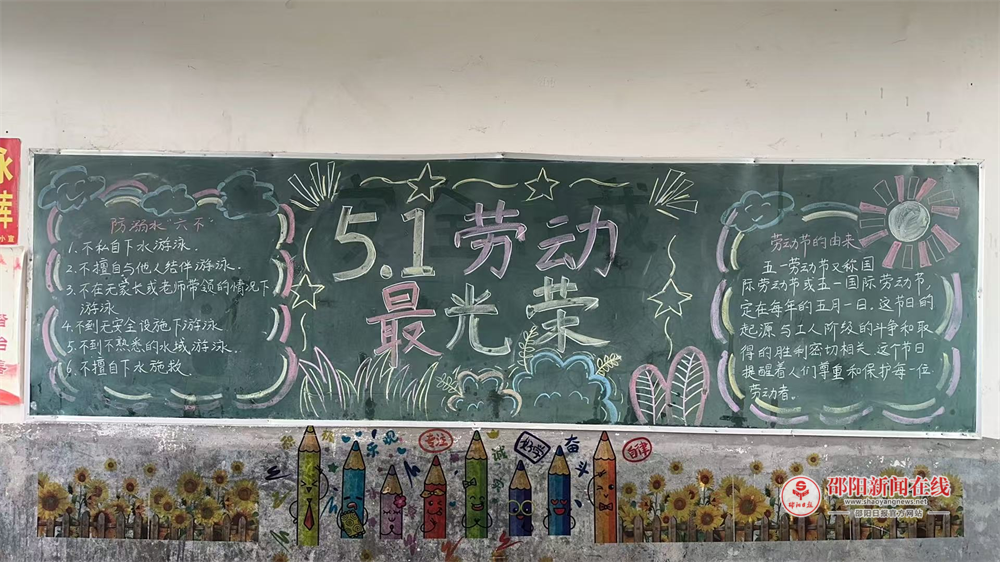 5.1劳动
最光荣
防溺水“六不”
1.不私自下水游泳.
2.不擅自与他人结伴游泳.
3.不在无家长或老师带领的情况下
游泳
4.不到无安全设施下游泳
5.不到不熟悉的水域游泳.
6.不擅自下水施救.
劳动节的由来
五一劳动节又称国
际劳动节或五一国际劳动节,
定在每年的五月一日。这节日的
起源与工人阶级的斗争和取
得的胜利密切相关.这个节日
提醒着人们尊重和保护每一位
劳动者。
专注
奋
斗
自律
邵阳新闻在线
www.shaoyangnews.net
邵阳日报官方网站
邵阳日报